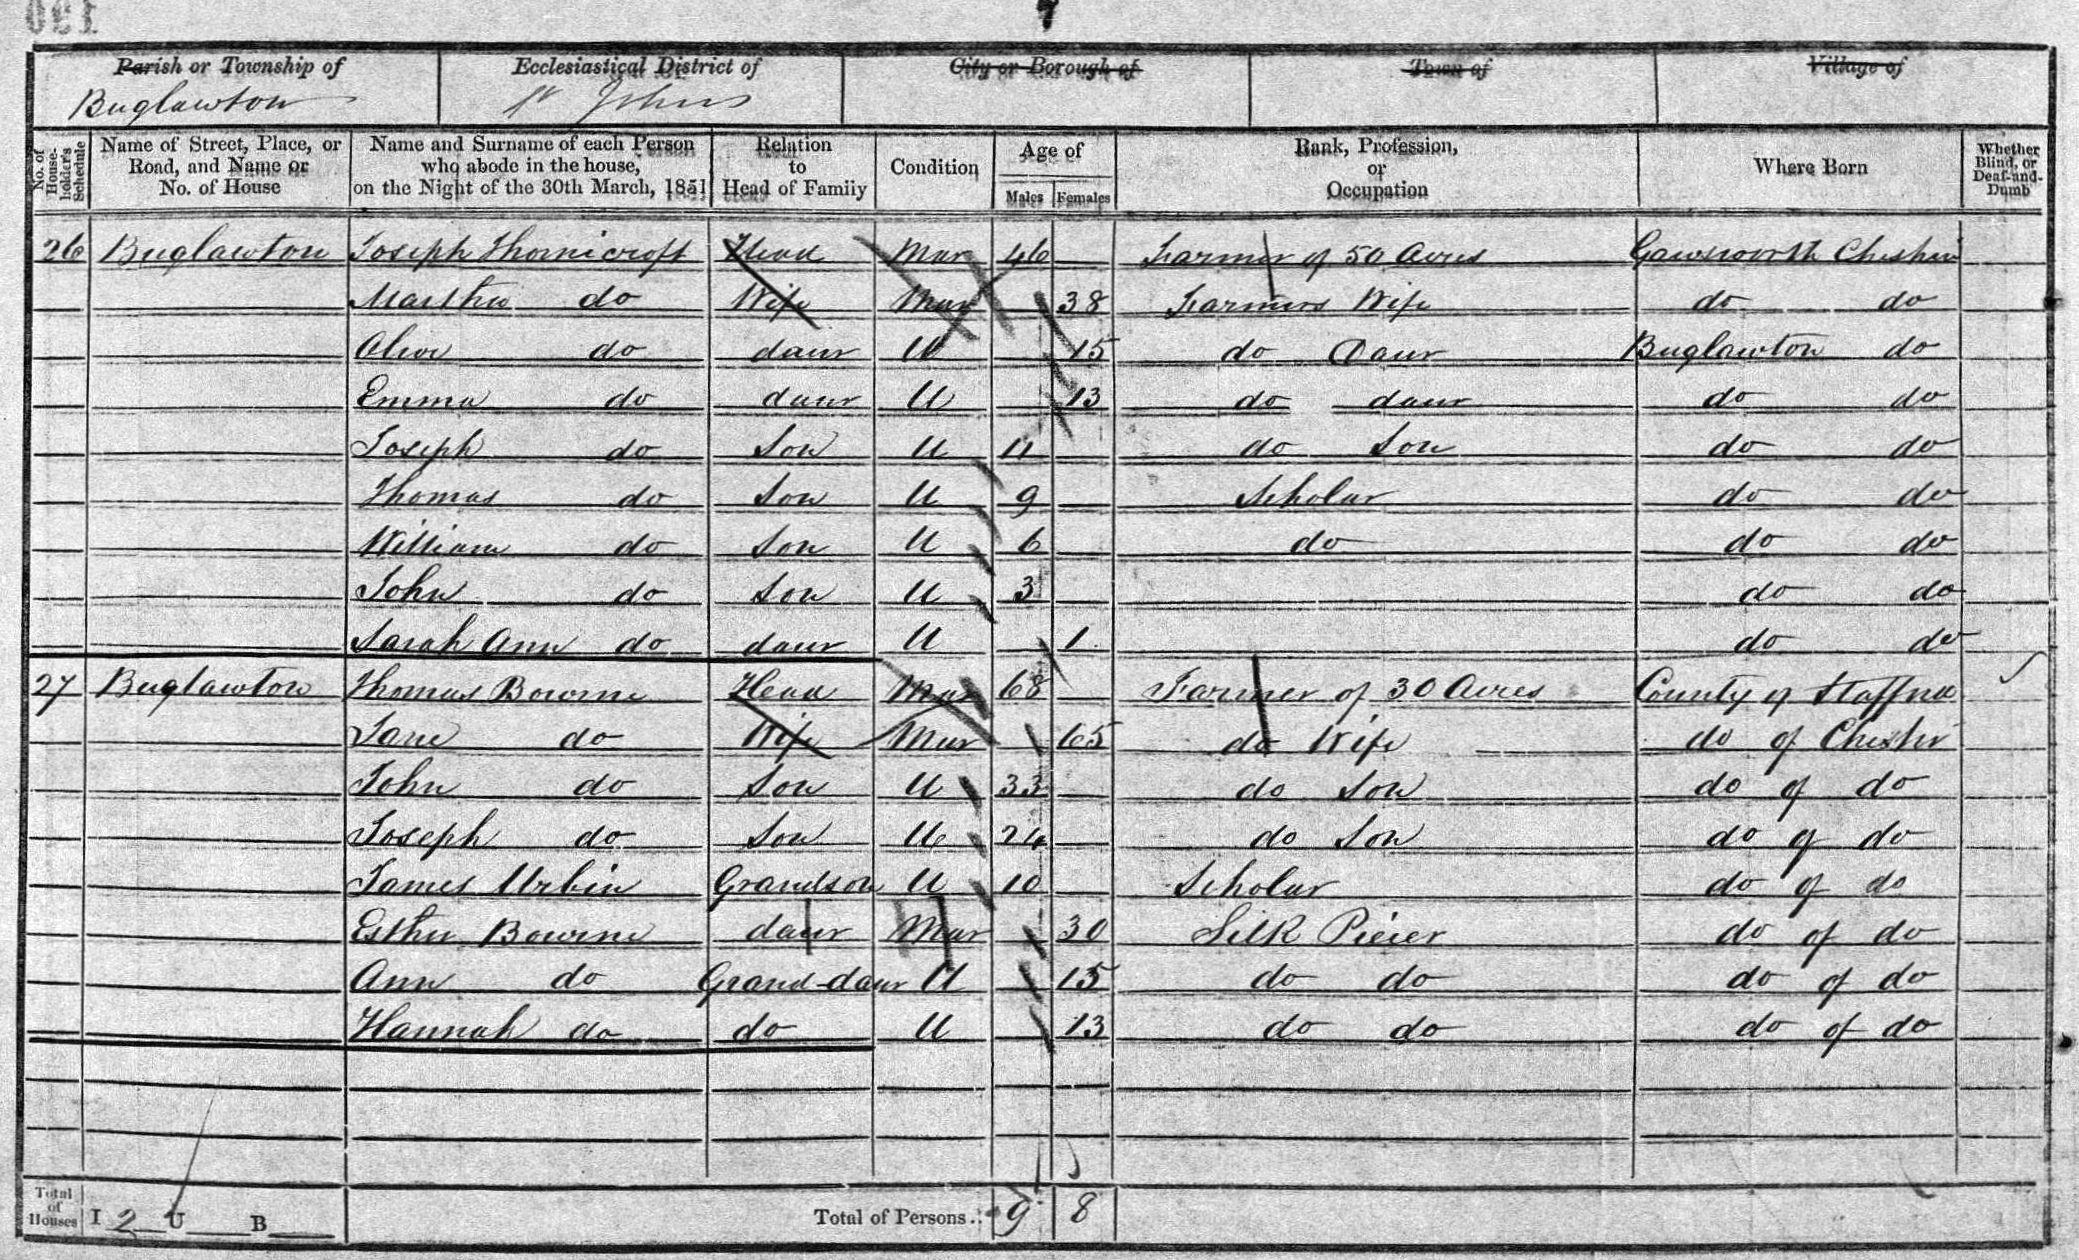 Parish or Township of Ecclesiastical District of City or Borough of Town of Village of
Buglawton St Johns
No. of House-holder's Schedule Name of Street, Place, or Road, and Name or No. of House Name and Surname of each Person who abode in the house, on the Night of the 30th March, 1851 Relation to Head of Family Condition Age of Males Females Rank, Profession, or Occupation Where Born Whether Blind, or Deaf-and-Dumb
26 Buglawton Joseph Thornicroft Head Mar 46 Farmer of 50 Acres Gawsworth Cheshire
Martha do Wife Mar 38 Farmers Wife do do
Olive do daur U 15 do Daur Buglawton do
Emma do daur U 13 do daur do do
Joseph do Son U 11 do Son do do
Thomas do Son U 9 Scholar do do
William do Son U 6 do do do
John do Son U 3 do do
Sarah Ann do daur U 1 do do
27 Buglawton Thomas Bourne Head Mar 68 Farmer of 30 Acres County of
Jane do Wife Mar 65 do Wife do of Chester
John do Son U 33 do Son do of do
Joseph do Son U 24 do Son do of do
James Urbin Grandson U 10 Scholar do of do
Esther Bourne daur Mar 30 Silk Piecer do of do
Ann do Grand-daur U 15 do do do of do
Hannah do do U 13 do do do of do
Total of Houses I 2 U B Total of Persons.. 9 8